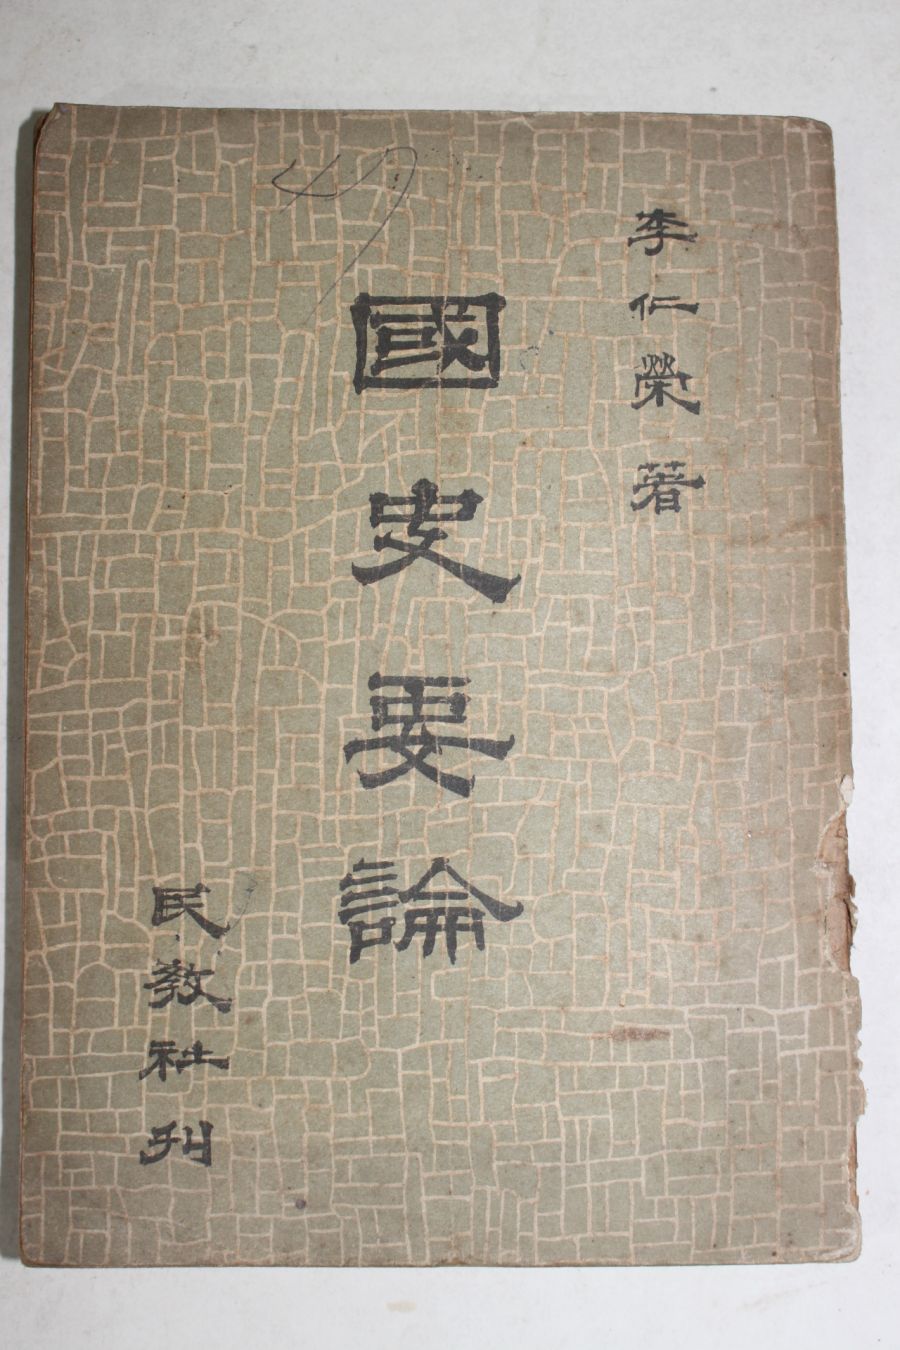 李仁榮著
國史要論
民教社刊